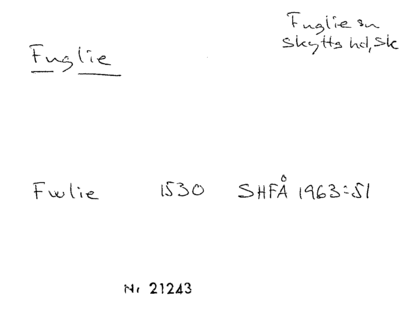 Fuglie sn
Skytts hd, Sk
Fuglie
Fwlie 1530 SHFÅ 1963:51
Nr 21243